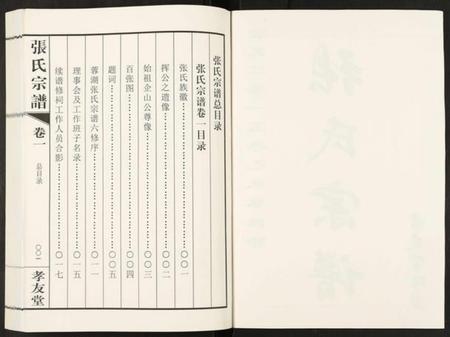 张氏宗谱总目录
张氏宗谱卷一目录
张氏族徽……〇〇一
挥公之遗像……〇〇二
始祖企山公尊像……〇〇三
百张图……〇〇四
题词……〇〇五
蓉湖张氏宗谱六修序……〇一一
理事会及工作班子名录……〇一五
续谱修祠工作人员合影……〇一七
張氏宗譜
卷一
总目录
〇〇一
孝友堂